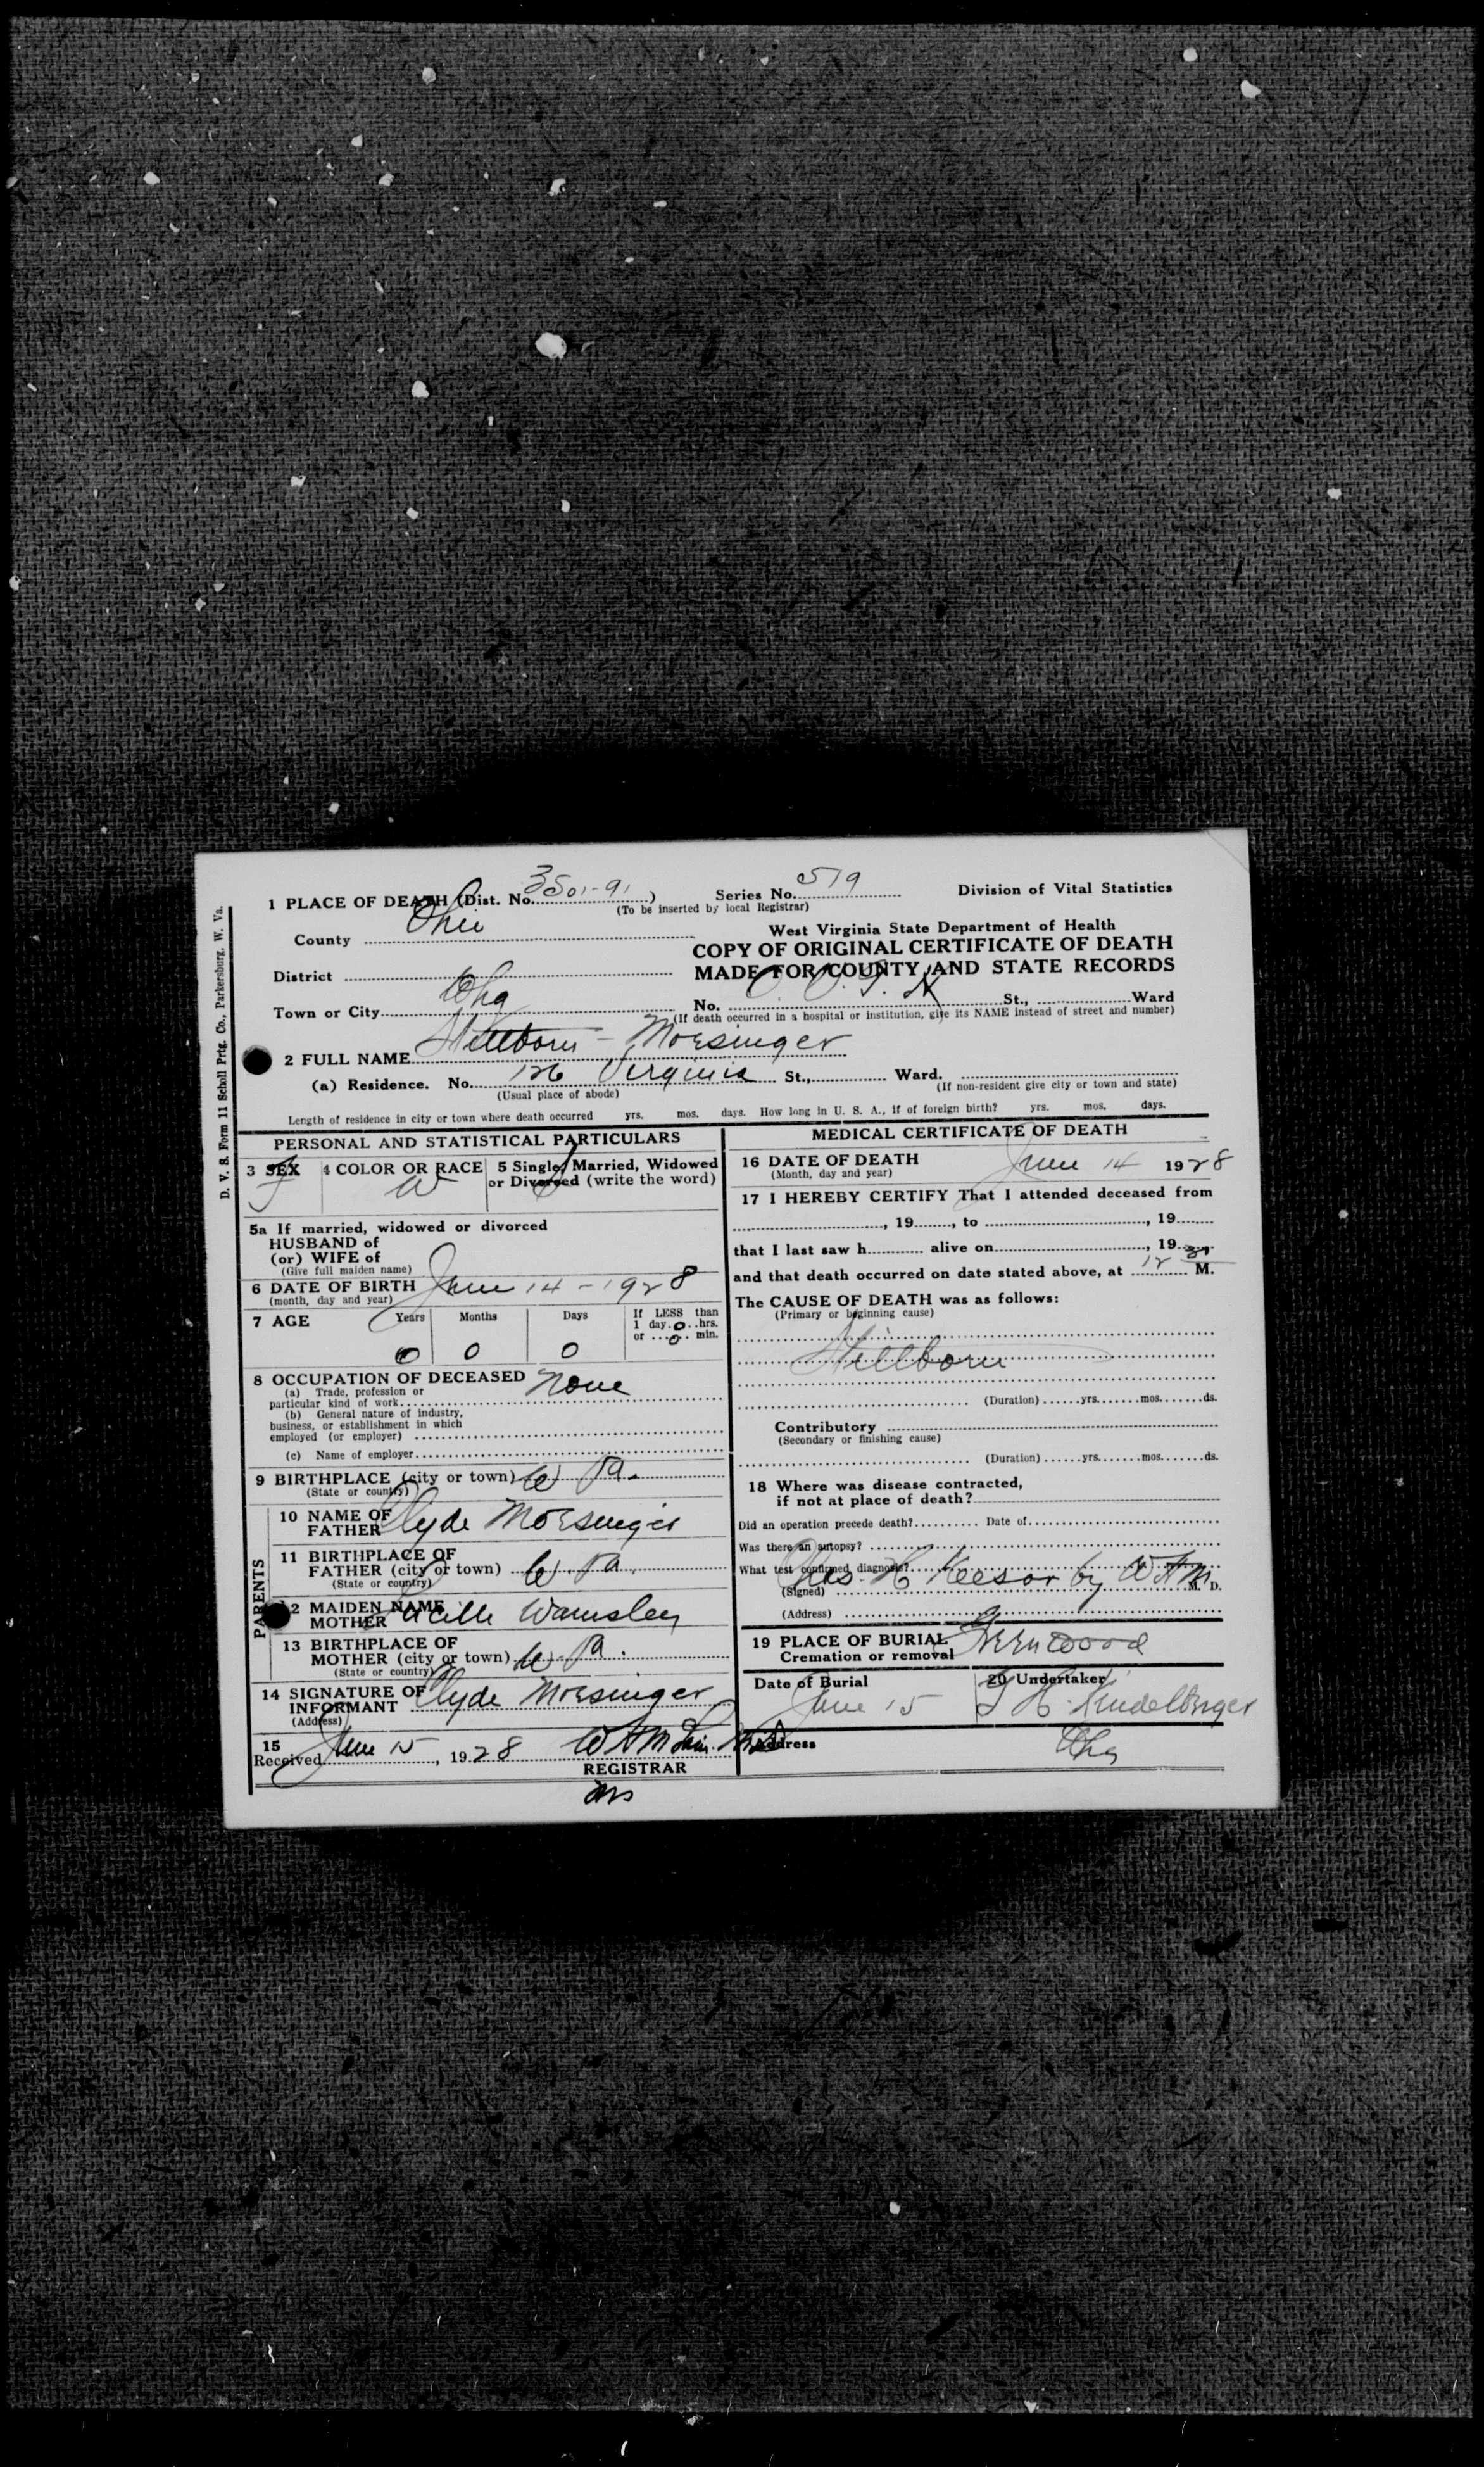 1 PLACE OF DEATH (Dist. No. 3501-91) Series No. 519 Division of Vital Statistics
(To be inserted by local Registrar)
County Ohio West Virginia State Department of Health
COPY OF ORIGINAL CERTIFICATE OF DEATH
District MADE FOR COUNTY AND STATE RECORDS
Town or City Whg No. O. V. G. H St., Ward
(If death occurred in a hospital or institution, give its NAME instead of street and number)
2 FULL NAME Stillborn - Moesinger
(a) Residence. No. 126 Virginia St., Ward.
(Usual place of abode) (If non-resident give city or town and state)
Length of residence in city or town where death occurred yrs. mos. days. How long in U. S. A., if of foreign birth? yrs. mos. days.
D. V. S. Form 11 Scholl Prtg. Co., Parkersburg, W. Va.
PERSONAL AND STATISTICAL PARTICULARS
3 SEX F
4 COLOR OR RACE W
5 Single, Married, Widowed
or Divorced (write the word) S
5a If married, widowed or divorced
HUSBAND of
(or) WIFE of
(Give full maiden name)
6 DATE OF BIRTH June 14 - 1928
(month, day and year)
7 AGE Years Months Days If LESS than
1 day 0 hrs.
or 0 min.
0 0 0
8 OCCUPATION OF DECEASED None
(a) Trade, profession or
particular kind of work
(b) General nature of industry,
business, or establishment in which
employed (or employer)
(c) Name of employer
9 BIRTHPLACE (city or town) W Va.
(State or country)
PARENTS
10 NAME OF
FATHER Clyde Moesinger
11 BIRTHPLACE OF
FATHER (city or town) W. Va.
(State or country)
12 MAIDEN NAME
MOTHER Lucille Wamsley
13 BIRTHPLACE OF
MOTHER (city or town) W. Va.
(State or country)
14 SIGNATURE OF
INFORMANT Clyde Moesinger
(Address)
15
Received June 15, 1928
REGISTRAR
MEDICAL CERTIFICATE OF DEATH
16 DATE OF DEATH June 14 1928
(Month, day and year)
17 I HEREBY CERTIFY That I attended deceased from
, 19 , to , 19
that I last saw h alive on , 19
and that death occurred on date stated above, at 12 30 M.
The CAUSE OF DEATH was as follows:
(Primary or beginning cause)
Stillborn
(Duration) yrs. mos. ds.
Contributory
(Secondary or finishing cause)
(Duration) yrs. mos. ds.
18 Where was disease contracted,
if not at place of death?
Did an operation precede death? Date of
Was there an autopsy?
What test confirmed diagnosis?
(Signed) Chas H Keesor by W A M M. D.
(Address)
19 PLACE OF BURIAL
Cremation or removal Greenwood
Date of Burial June 15
20 Undertaker
Address Whg